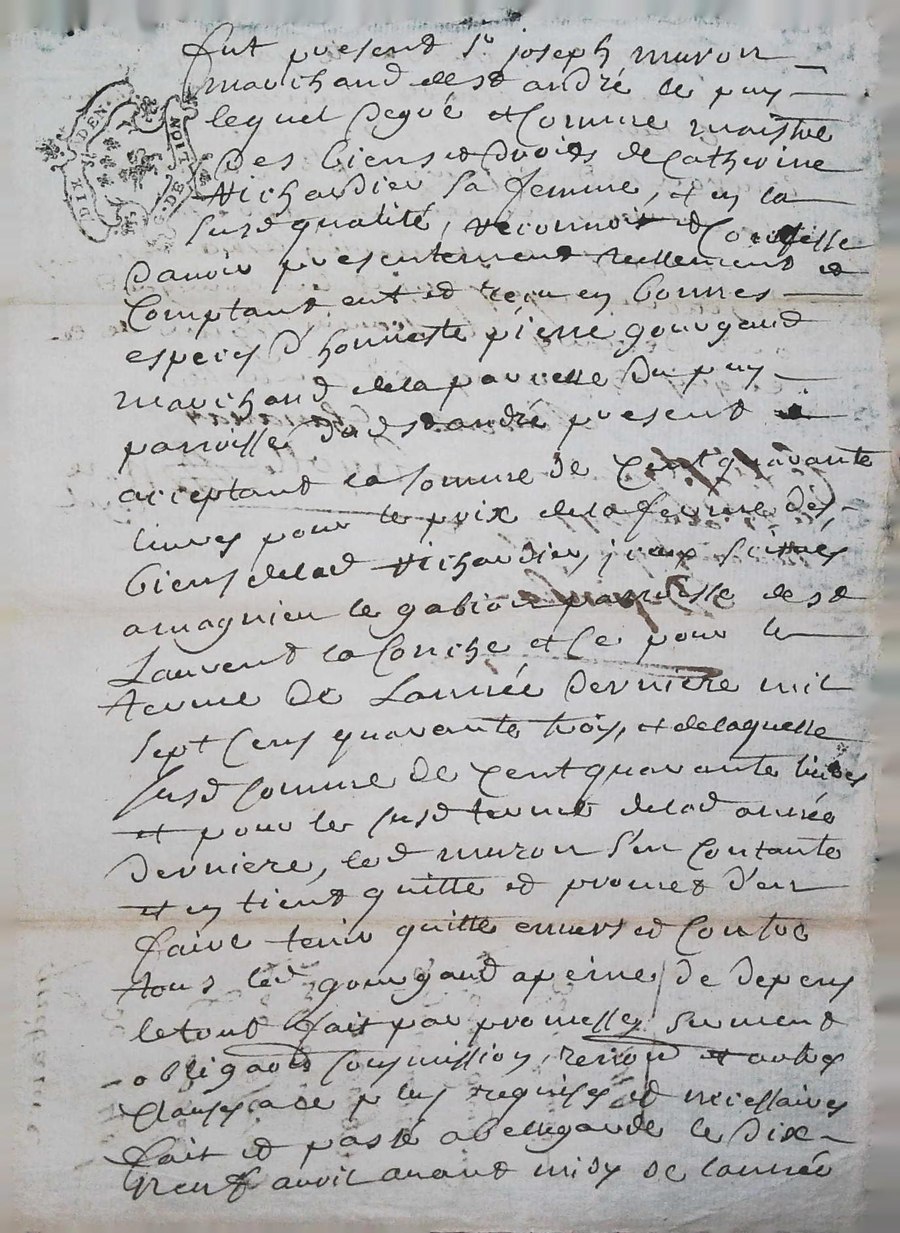 fut present Sr joseph muron
marchand de st andré le puy
lequel de gré et Comme maistre
des biens et droits de Catherine
Richardier sa femme, et en la
susd qualité, reconnoit et Confesse
d'avoir presentement reellement et
Comptant eut et reçu en bonnes
especes d'honneste pierre gourgaud
marchand de la parcelle du puy
parroisse dud st andré present et
acceptant la somme de Cent quarante
livres pour le prix de la ferme des
biens de lad Richardier, jceux scitués
amagnieu le gabion parroisse de st
Laurent la Conche et Ce pour le
terme de L'année derniere mil
sept Cens quarante trois, et de laquelle
susd somme de Cent quarante livres
et pour le susd terme de lad année
derniere, led muron s'en Contante
et en tient quitte et promet d'en
faire tenir quitte envers et Contre
tous led gourgaud a peine de depens
le tout fait par promesses serment
obligaons soumissions, renon et autres
Clauses a ce plus requises et necessaires
fait et passé a bellegarde le dix
neuf avril avant midy de l'année
DIX DEN.
G. DE LION